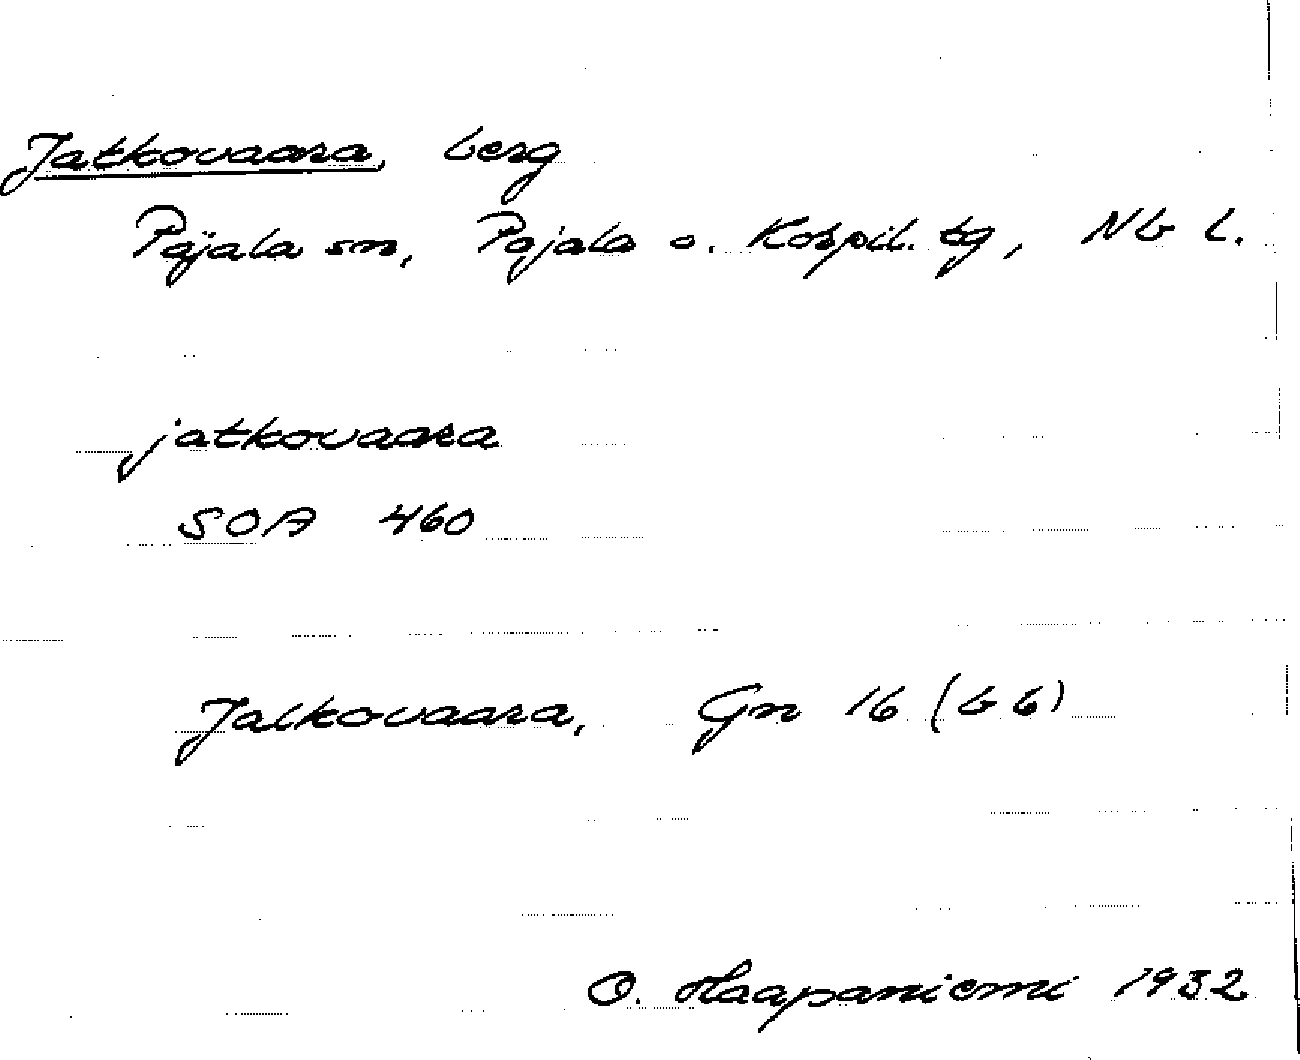 Jatkovaara, berg
Pajala sn, Pajala o. Korpil. tg, Nb l.
jatkovaara
SOA 460
Jatkovaara, Gn 16 (b 6)
O. Haapaniemi 1932